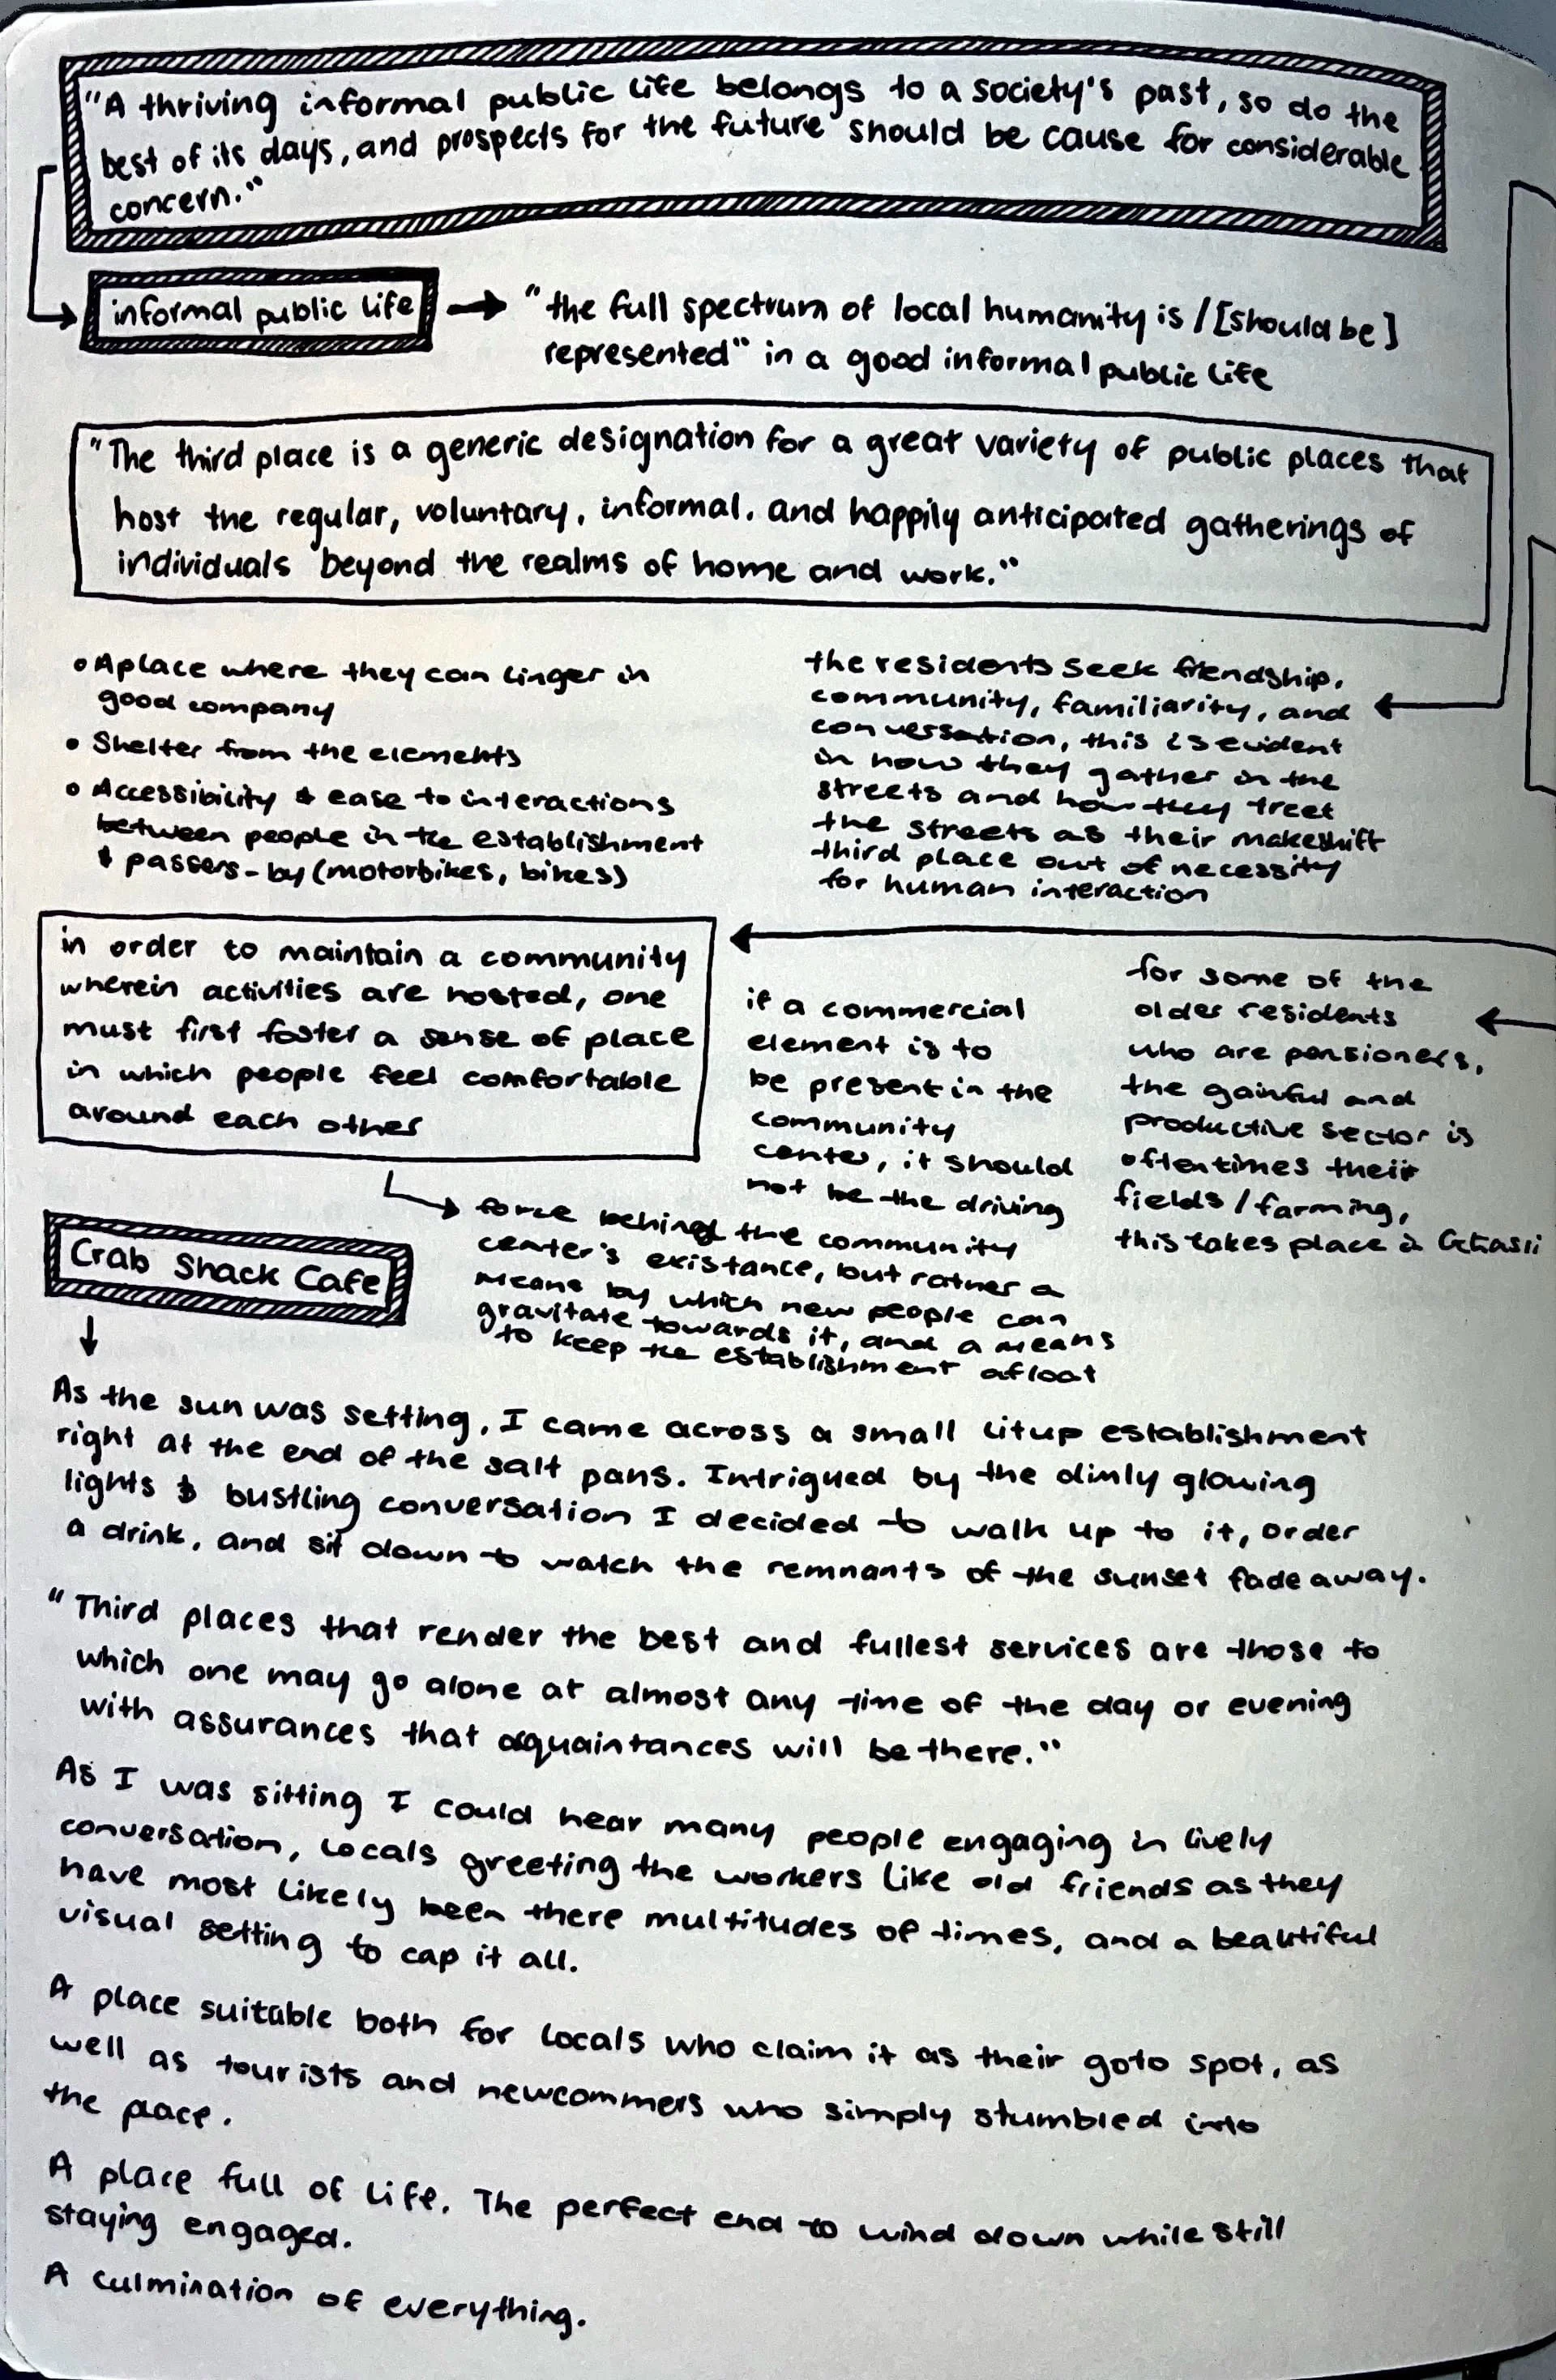 "A thriving informal public life belongs to a society's past, so do the
best of its days, and prospects for the future should be cause for considerable
concern."
informal public life → "the full spectrum of local humanity is / [should be]
represented" in a good informal public life
"The third place is a generic designation for a great variety of public places that
host the regular, voluntary, informal, and happily anticipated gatherings of
individuals beyond the realms of home and work."
• A place where they can linger in
good company
• Shelter from the elements
• Accessibility & ease to interactions
between people in the establishment
& passers-by (motorbikes, bikes)
the residents seek friendship,
community, familiarity, and
conversation, this is evident
in how they gather in the
streets and how they treet
the streets as their makeshift
third place out of necessity
for human interaction
in order to maintain a community
wherein activities are hosted, one
must first foster a sense of place
in which people feel comfortable
around each other
if a commercial
element is to
be present in the
community
center, it should
not be the driving
force behind the community
center's existance, but rather a
means by which new people can
gravitate towards it, and a means
to keep the establishment afloat
for some of the
older residents
who are pensioners,
the gainful and
productive sector is
oftentimes their
fields / farming,
this takes place in
Crab Shack Cafe
As the sun was setting, I came across a small litup establishment
right at the end of the salt pans. Intrigued by the dimly glowing
lights & bustling conversation I decided to walk up to it, order
a drink, and sit down to watch the remnants of the sunset fade away.
"Third places that render the best and fullest services are those to
which one may go alone at almost any time of the day or evening
with assurances that aquaintances will be there."
As I was sitting I could hear many people engaging in lively
conversation, locals greeting the workers like old friends as they
have most likely been there multitudes of times, and a beautiful
visual setting to cap it all.
A place suitable both for locals who claim it as their goto spot, as
well as tourists and newcommers who simply stumbled into
the place.
A place full of life. The perfect end to wind down while still
staying engaged.
A culmination of everything.